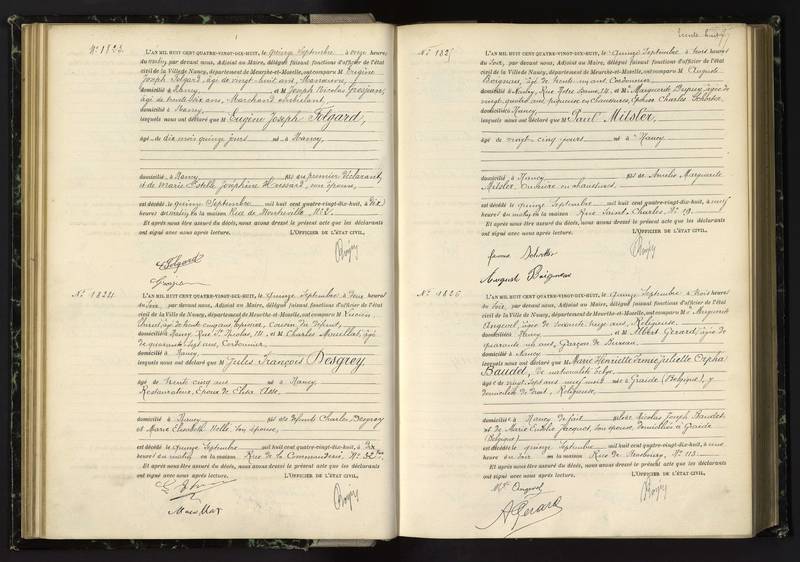 N° 1823.
L'AN MIL HUIT CENT QUATRE-VINGT-DIX-HUIT, le quinze Septembre à onze heures
du matin, par devant nous, Adjoint au Maire, délégué faisant fonctions d'officier de l'état
civil de la Ville de Nancy, département de Meurthe-et-Moselle, ont comparu M Eugène
Joseph Folgard, âgé de vingt huit ans, Manœuvre,
domicilié à Nancy, et M Joseph Nicolas Grosjean,
âgé de trente six ans, Marchand ambulant,
domicilié à Nancy
lesquels nous ont déclaré que M Eugène Joseph Folgard,
âgé de dix mois quinze jours né à Nancy,
domicilié à Nancy, fils au premier déclarant,
et de Marie Estelle Joséphine Hussard, son épouse,
est décédé le quinze Septembre mil huit cent quatre-vingt-dix-huit, à dix
heures du matin en la maison Rue de N° 2.
Et après nous être assuré du décès, nous avons dressé le présent acte que les déclarants
ont signé avec nous après lecture. L'OFFICIER DE L'ÉTAT CIVIL,
Folgard
N° 1824.
L'AN MIL HUIT CENT QUATRE-VINGT-DIX-HUIT, le quinze Septembre à deux heures
du Soir, par devant nous, Adjoint au Maire, délégué faisant fonctions d'officier de l'état
civil de la Ville de Nancy, département de Meurthe-et-Moselle, ont comparu M
âgé de trente cinq ans, cousin du défunt,
domicilié à Nancy, Rue St 14, et M Charles Mouillat, âgé
de quarante sept ans, Cordonnier,
domicilié à Nancy,
lesquels nous ont déclaré que M Jules François Desgrey
âgé de trente cinq ans né à Nancy,
Restaurateur, Époux de Elisa
domicilié à Nancy fils de défunt Charles Desgrey
et Marie Elisabeth Nolle, son épouse,
est décédé le quinze Septembre mil huit cent quatre-vingt-dix-huit, à dix
heures du matin en la maison Rue de la Commanderie, N° 32
Et après nous être assuré du décès, nous avons dressé le présent acte que les déclarants
ont signé avec nous après lecture. L'OFFICIER DE L'ÉTAT CIVIL,
Mouillat
N° 1825
L'AN MIL HUIT CENT QUATRE-VINGT-DIX-HUIT, le quinze Septembre à trois heures
du Soir, par devant nous, Adjoint au Maire, délégué faisant fonctions d'officier de l'état
civil de la Ville de Nancy, département de Meurthe-et-Moselle, ont comparu M Auguste
Boigneau, âgé de trente un ans, Cordonnier,
domicilié à Nancy, Rue Notre Dame, 14, et Me Marguerite Dupuy, âgée de
vingt quatre ans, piqueuse en chaussures, Épouse Charles
domicilié à Nancy,
lesquels nous ont déclaré que M Paul Mitsler,
âgé de vingt cinq jours né à Nancy
domicilié à Nancy fils de Amélie Marguerite
Mitsler, en chaussures,
est décédé le quinze Septembre mil huit cent quatre-vingt-dix-huit, à neuf
heures du matin en la maison Rue Saint Charles N° 19.
Et après nous être assuré du décès, nous avons dressé le présent acte que les déclarants
ont signé avec nous après lecture. L'OFFICIER DE L'ÉTAT CIVIL,
femme
August Boigneau
N° 1826
L'AN MIL HUIT CENT QUATRE-VINGT-DIX-HUIT, le quinze Septembre à trois heures
du Soir, par devant nous, Adjoint au Maire, délégué faisant fonctions d'officier de l'état
civil de la Ville de Nancy, département de Meurthe-et-Moselle, ont comparu Me Marguerite
Angevel, âgée de soixante onze ans, Religieuse,
domicilié à Nancy, et M Albert Gérard, âgé de
quarante un ans, Garçon de Bureau,
domicilié à Nancy
lesquels nous ont déclaré que M Marie Henriette Juliette Orpha
Baudet, de nationalité belge,
âgé e de vingt sept ans neuf mois née à Graide (Belgique), y
domiciliée de droit, Religieuse,
domicilié à Nancy de fait fille de Nicolas Joseph Baudet
et de Marie Jacquet, son épouse, domiciliés à Graide
(Belgique)
est décédée le quinze Septembre mil huit cent quatre-vingt-dix-huit, à une
heure du Soir en la maison Rue de Strasbourg, N° 113.
Et après nous être assuré du décès, nous avons dressé le présent acte que les déclarants
ont signé avec nous après lecture. L'OFFICIER DE L'ÉTAT CIVIL,
Angevel
A Gérard